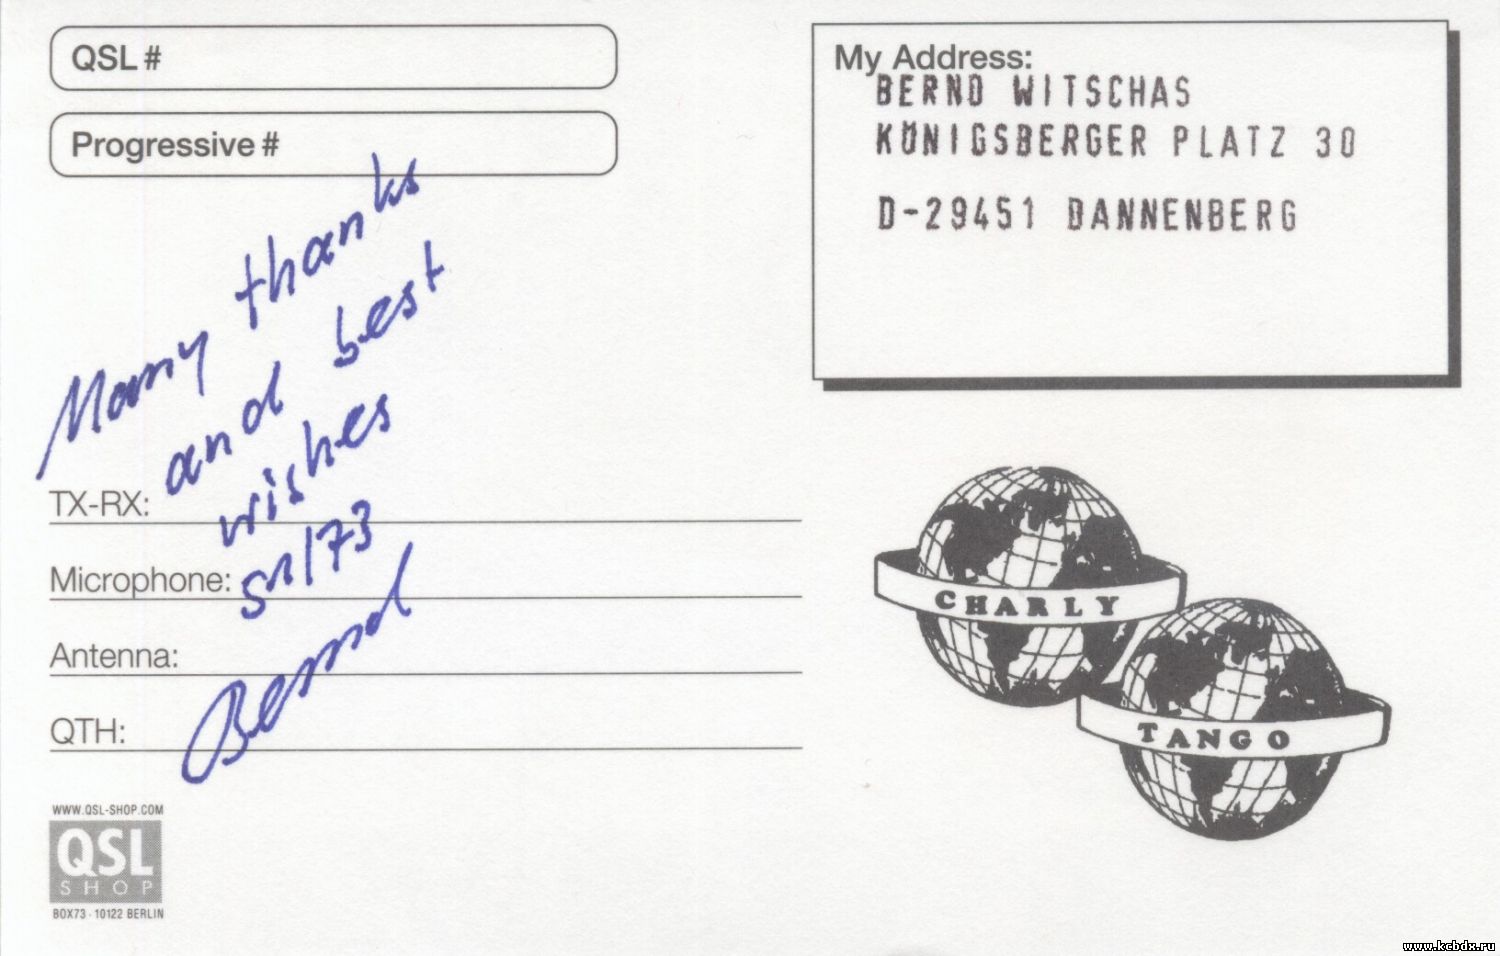 QSL #
Progressive #
My Address:
BERND WITSCHAS
KÖNIGSBERGER PLATZ 30
D-29451 DANNENBERG
Many thanks
and best
wishes
73
Bernd
TX-RX:
Microphone:
Antenna:
QTH:
CHARLY
TANGO
WWW.QSL-SHOP.COM
QSL
SHOP
BOX73 · 10122 BERLIN
www.kcbdx.ru